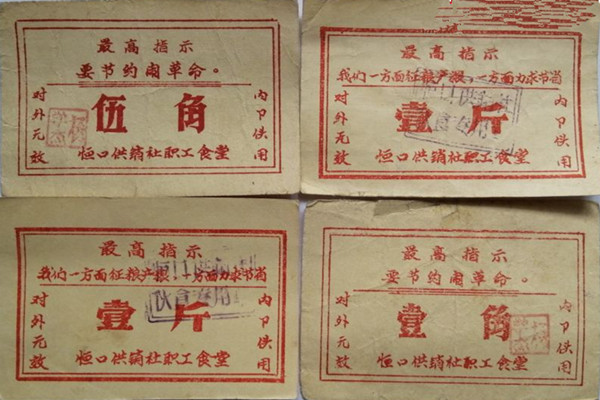 最高指示
要节约闹革命。
伍角
对外无效
内卩供用
恒口供销社职工食堂
最高指示
我们一方面征粮 一方面力求节省
壹斤
对外无效
内卩供用
恒口供销社职工食堂
最高指示
我们一方面征粮 一方面力求节省
壹斤
伙食专用
对外无效
内卩供用
恒口供销社职工食堂
最高指示
要节约闹革命。
壹角
对外无效
内卩供用
恒口供销社职工食堂